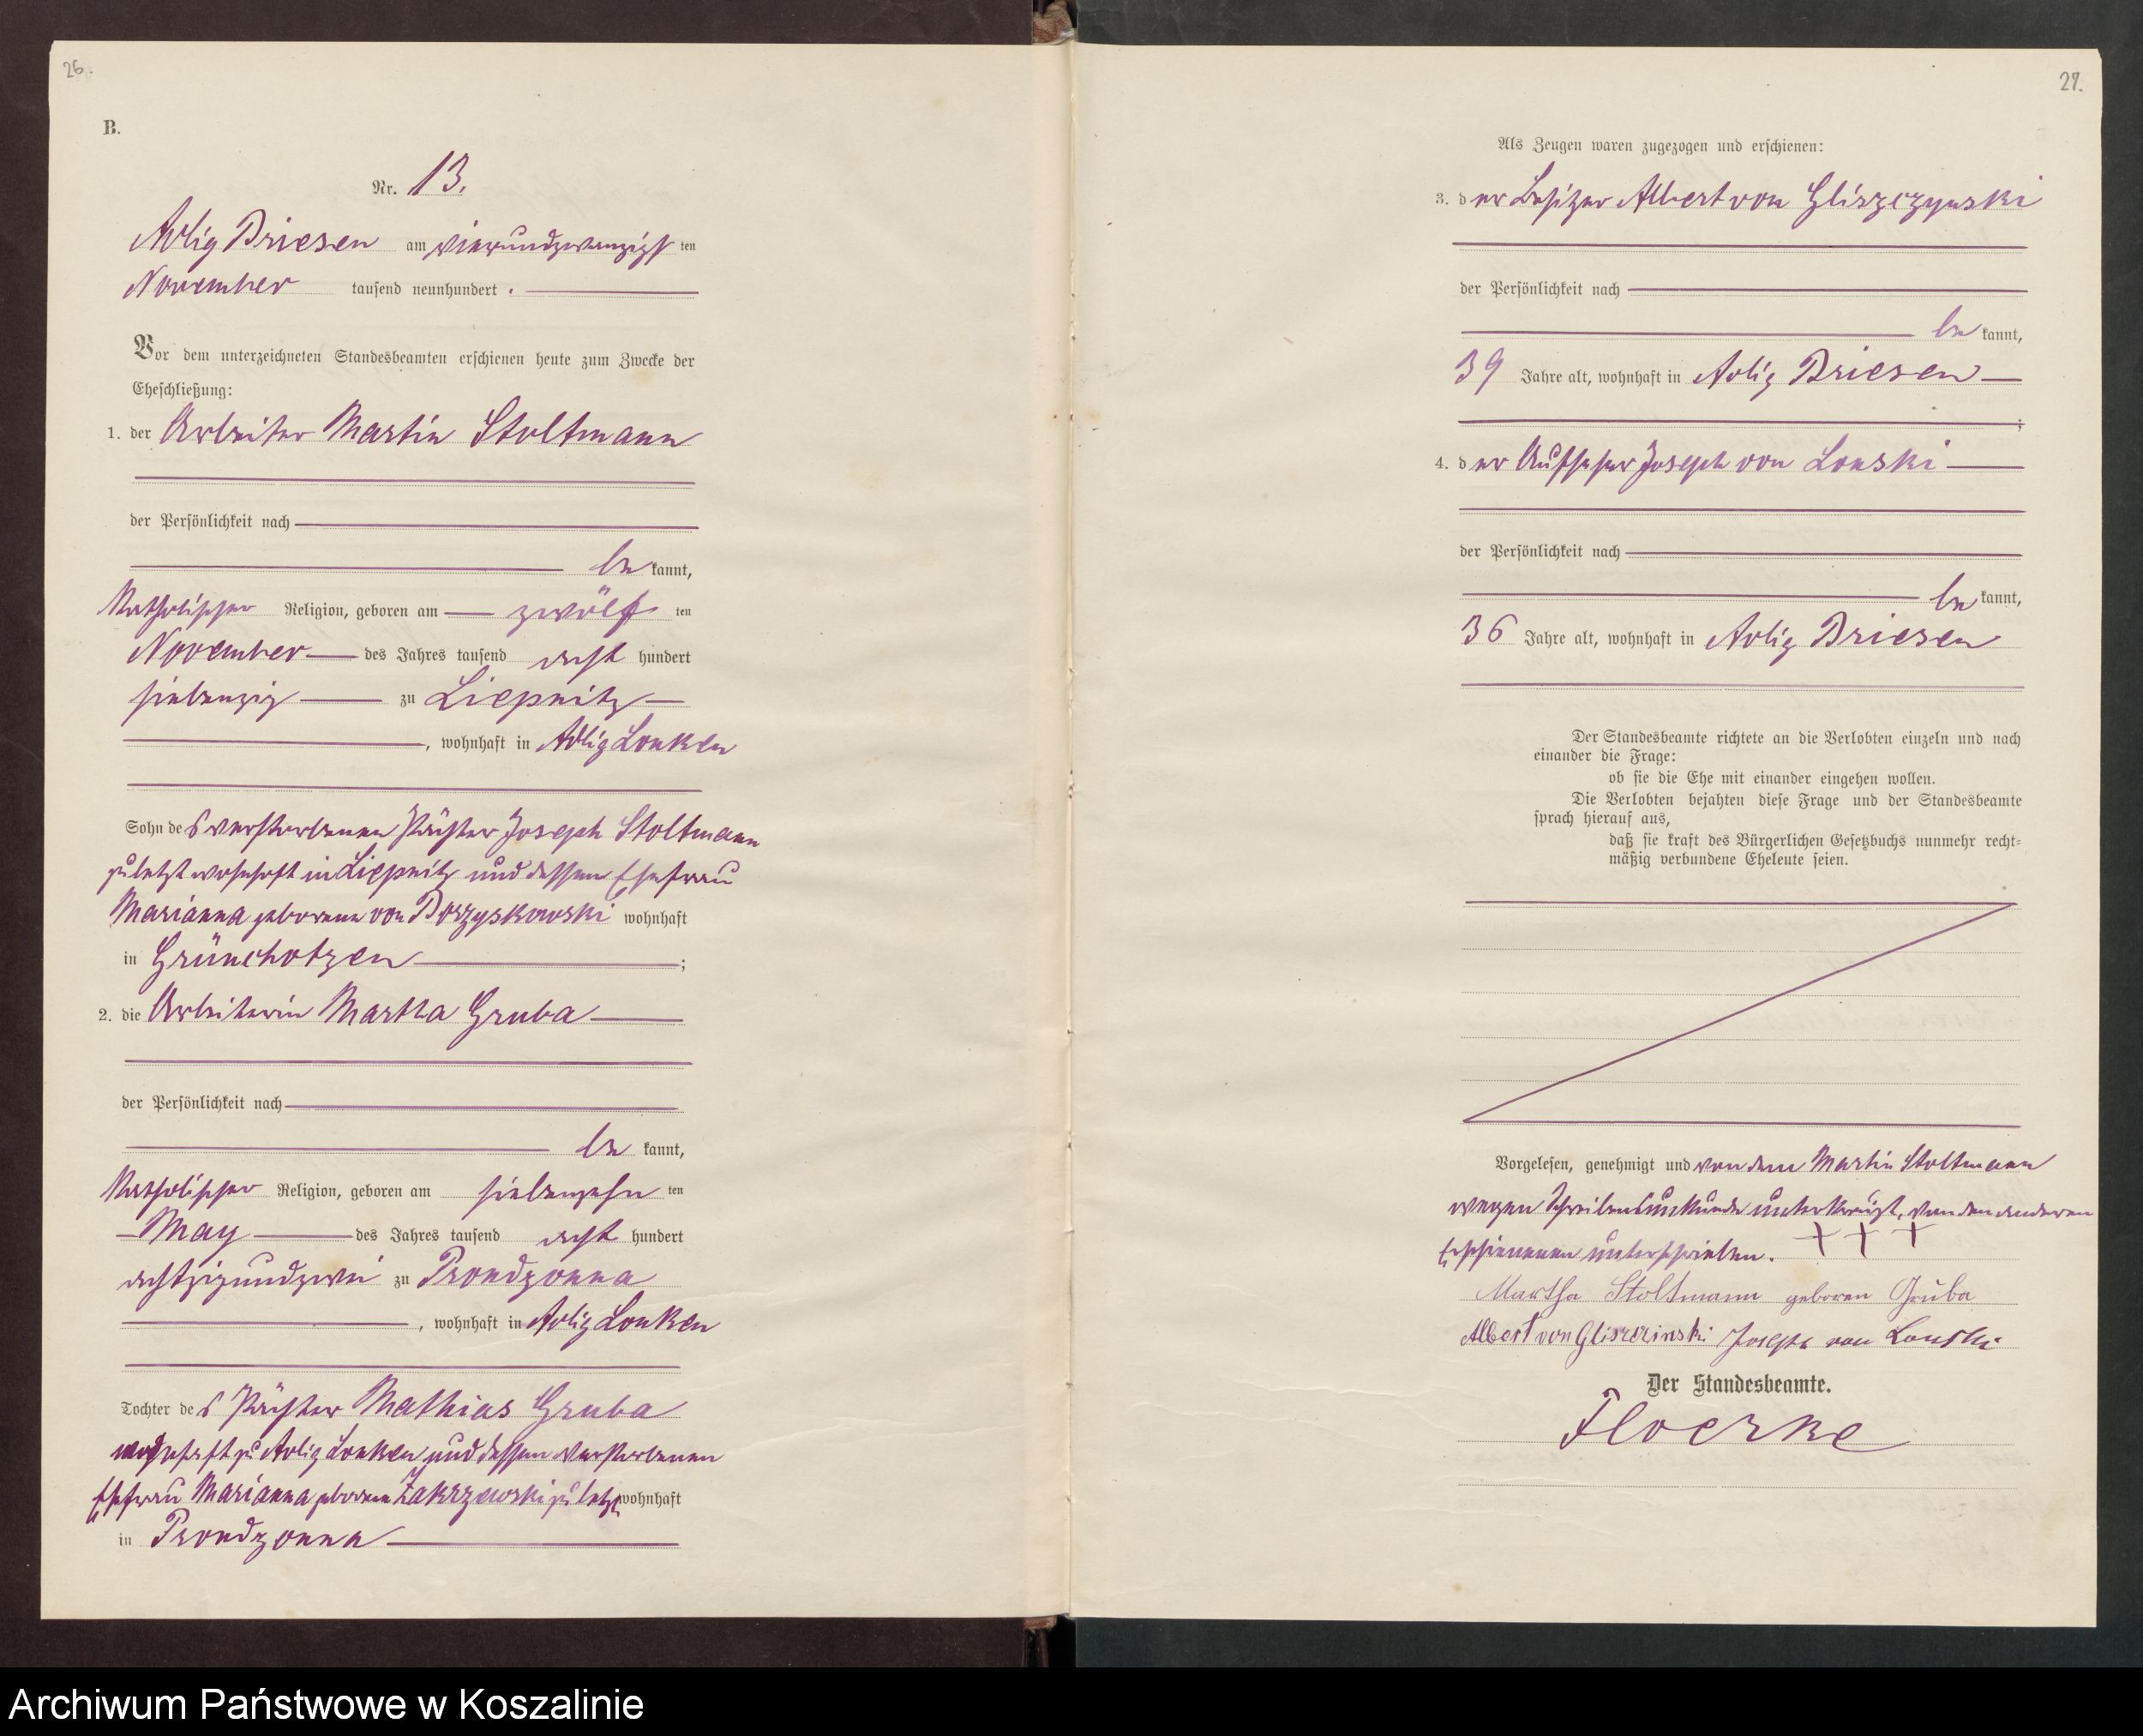 26.
B.
Nr. 13.
Adlig Briesen am vierundzwanzigsten
November tausend neunhundert .
Vor dem unterzeichneten Standesbeamten erschienen heute zum Zwecke der
Eheschließung:
1. der Arbeiter Martin Stoltmann
der Persönlichkeit nach
be kannt,
Katholischer Religion, geboren am zwölf ten
November des Jahres tausend acht hundert
siebenzig zu Liepnitz
, wohnhaft in Adlig Lonken
Sohn des verstorbenen Pächter Joseph Stoltmann
zuletzt wohnhaft in Liepnitz und dessen Ehefrau
Marianna geborene von Borzyskowski wohnhaft
in Grünchotzen ;
2. die Arbeiterin Martha Gruba
der Persönlichkeit nach
be kannt,
Katholischer Religion, geboren am siebenzehn ten
May des Jahres tausend acht hundert
achtzigundzwei zu Prondzonna
, wohnhaft in Adlig Lonken
Tochter des Pächter Mathias Gruba
wohnhaft zu Adlig Lonken und dessen verstorbenen
Ehefrau Marianna geborene Zakrzewski zuletzt wohnhaft
in Prondzonna
27.
Als Zeugen waren zugezogen und erschienen:
3. der Besitzer Albert von Gliszczynski
der Persönlichkeit nach
be kannt,
39 Jahre alt, wohnhaft in Adlig Briesen
;
4. der Aufseher Joseph von Lonski
der Persönlichkeit nach
be kannt,
36 Jahre alt, wohnhaft in Adlig Briesen
Der Standesbeamte richtete an die Verlobten einzeln und nach
einander die Frage:
ob sie die Ehe mit einander eingehen wollen.
Die Verlobten bejahten diese Frage und der Standesbeamte
sprach hierauf aus,
daß sie kraft des Bürgerlichen Gesetzbuchs nunmehr recht-
mäßig verbundene Eheleute seien.
Vorgelesen, genehmigt und von dem Martin Stoltmann
wegen Schreibensunkunde unterkreuzt, von den anderen
Erschienenen unterschrieben. + + +
Martha Stoltmann geboren Gruba
Albert von Gliszczinski Joseph von Lonski
Der Standesbeamte.
Floerke
Archiwum Państwowe w Koszalinie